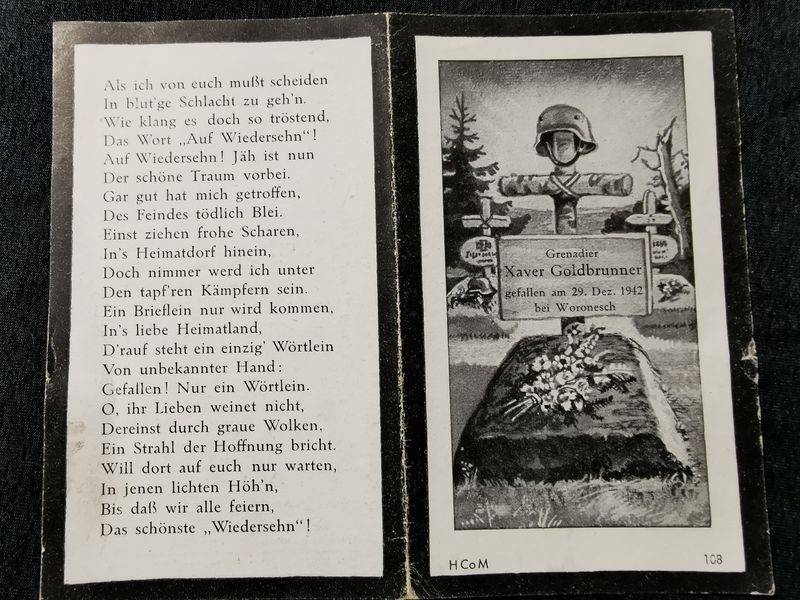 Als ich von euch mußt scheiden
In blut'ge Schlacht zu geh'n.
Wie klang es doch so tröstend,
Das Wort „Auf Wiedersehn“!
Auf Wiedersehn! Jäh ist nun
Der schöne Traum vorbei.
Gar gut hat mich getroffen,
Des Feindes tödlich Blei.
Einst ziehen frohe Scharen,
In's Heimatdorf hinein,
Doch nimmer werd ich unter
Den tapf'ren Kämpfern sein.
Ein Brieflein nur wird kommen,
In's liebe Heimatland,
D'rauf steht ein einzig' Wörtlein
Von unbekannter Hand:
Gefallen! Nur ein Wörtlein.
O, ihr Lieben weinet nicht,
Dereinst durch graue Wolken,
Ein Strahl der Hoffnung bricht.
Will dort auf euch nur warten,
In jenen lichten Höh'n,
Bis daß wir alle feiern,
Das schönste „Wiedersehn“!
Grenadier
Xaver Goldbrunner
gefallen am 29. Dez. 1942
bei Woronesch
HCoM
108